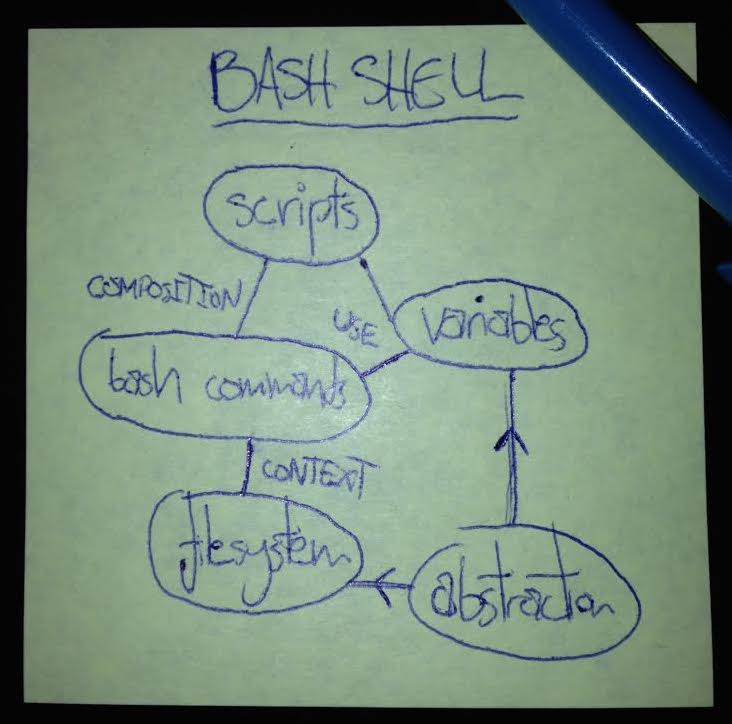 BASH SHELL
scripts
COMPOSITION
USE
variables
bash commands
CONTEXT
filesystem
abstraction